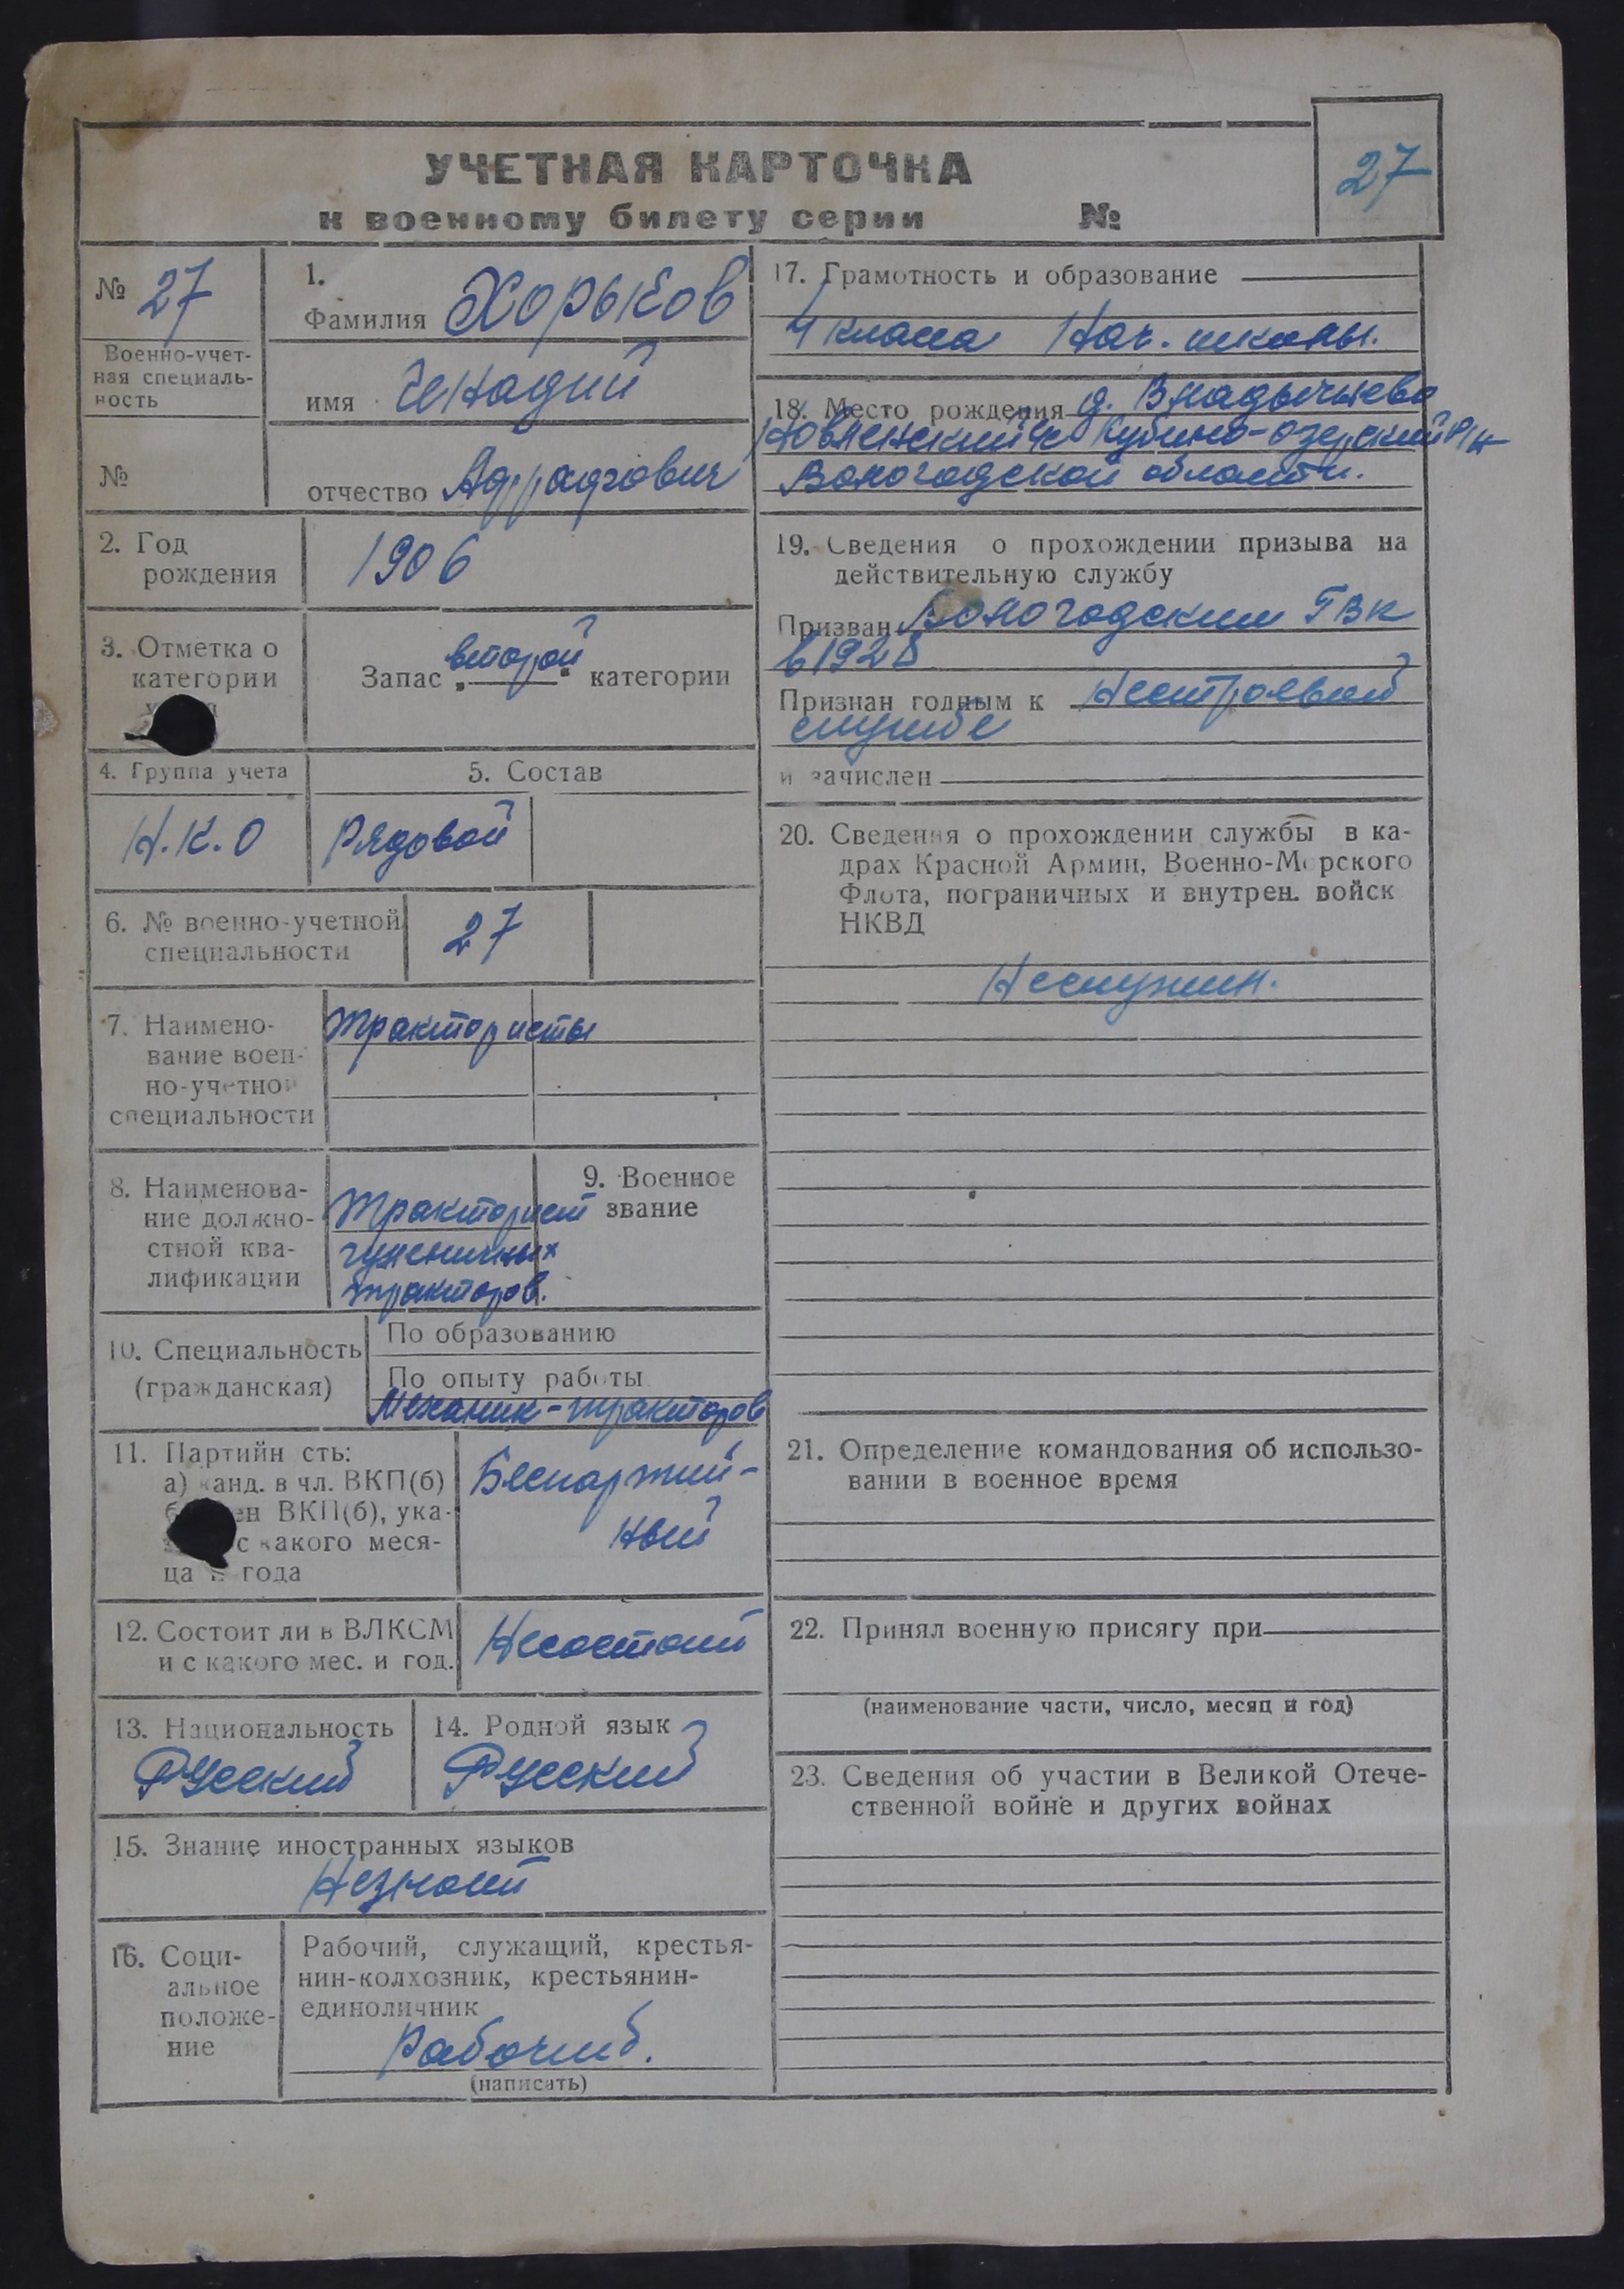 27
УЧЕТНАЯ КАРТОЧКА
к военному билету серии №
№ 27
Военно-учет-
ная специаль-
ность
№
1.
Фамилия Хорьков
имя Генадий
отчество
2. Год
рождения
1906
3. Отметка о
категории
Запас „второй“ категории
4. Группа учета
Н.К.О
5. Состав
Рядовой
6. № военно-учетной
специальности
27
7. Наимено-
вание воен-
но-учетной
специальности
Трактористы
8. Наименова-
ние должно-
стной ква-
лификации
Тракторист
гусеничных
тракторов.
9. Военное
звание
10. Специальность
(гражданская)
По образованию
По опыту работы
Механик-тракторов
11. Партийн сть:
а) канд. в чл. ВКП(б)
ен ВКП(б), ука-
с какого меся-
ца и года
Беспартий-
ный
12. Состоит ли в ВЛКСМ
и с какого мес. и год.
Несостоит
13. Национальность
Русский
14. Родной язык
Русский
15. Знание иностранных языков
Незнает
16. Соци-
альное
положе-
ние
Рабочий, служащий, крестья-
нин-колхозник, крестьянин-
единоличник
Рабочий.
(написать)
17. Грамотность и образование
4 класса Нач. школы.
18. Место рождения д. Владычнево
Кубино-озерский р/н
Вологодской области.
19. Сведения о прохождении призыва на
действительную службу
Призван Вологодским ГВК
в 1928
Признан годным к Нестроевой
службе
и зачислен
20. Сведения о прохождении службы в ка-
драх Красной Армии, Военно-Морского
Флота, пограничных и внутрен. войск
НКВД
Неслужил.
21. Определение командования об использо-
вании в военное время
22. Принял военную присягу при
(наименование части, число, месяц и год)
23. Сведения об участии в Великой Отече-
ственной войне и других войнах